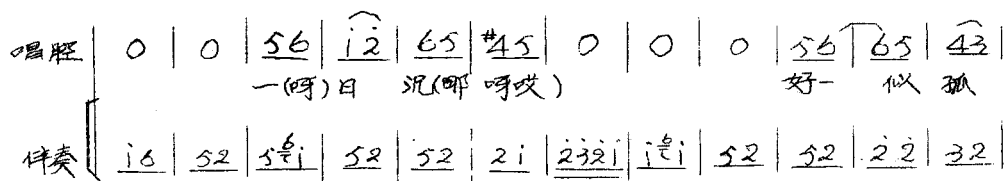 唱腔 | 0 | 0 | 56 | i̇ 2̇ | 65 | #45 | 0 | 0 | 0 | 56 | 65 | 43 |
一(呀)日 沉(哪 呀哎) 好一 似 孤
伴奏 | i̇6 | 52 | 5 6 7 i̇ | 52 | 52 | 2 i̇ | 2̇3̇2̇i̇ | i̇ 6 7 i̇ | 52 | 52 | 2̇ 2̇ | 32 |